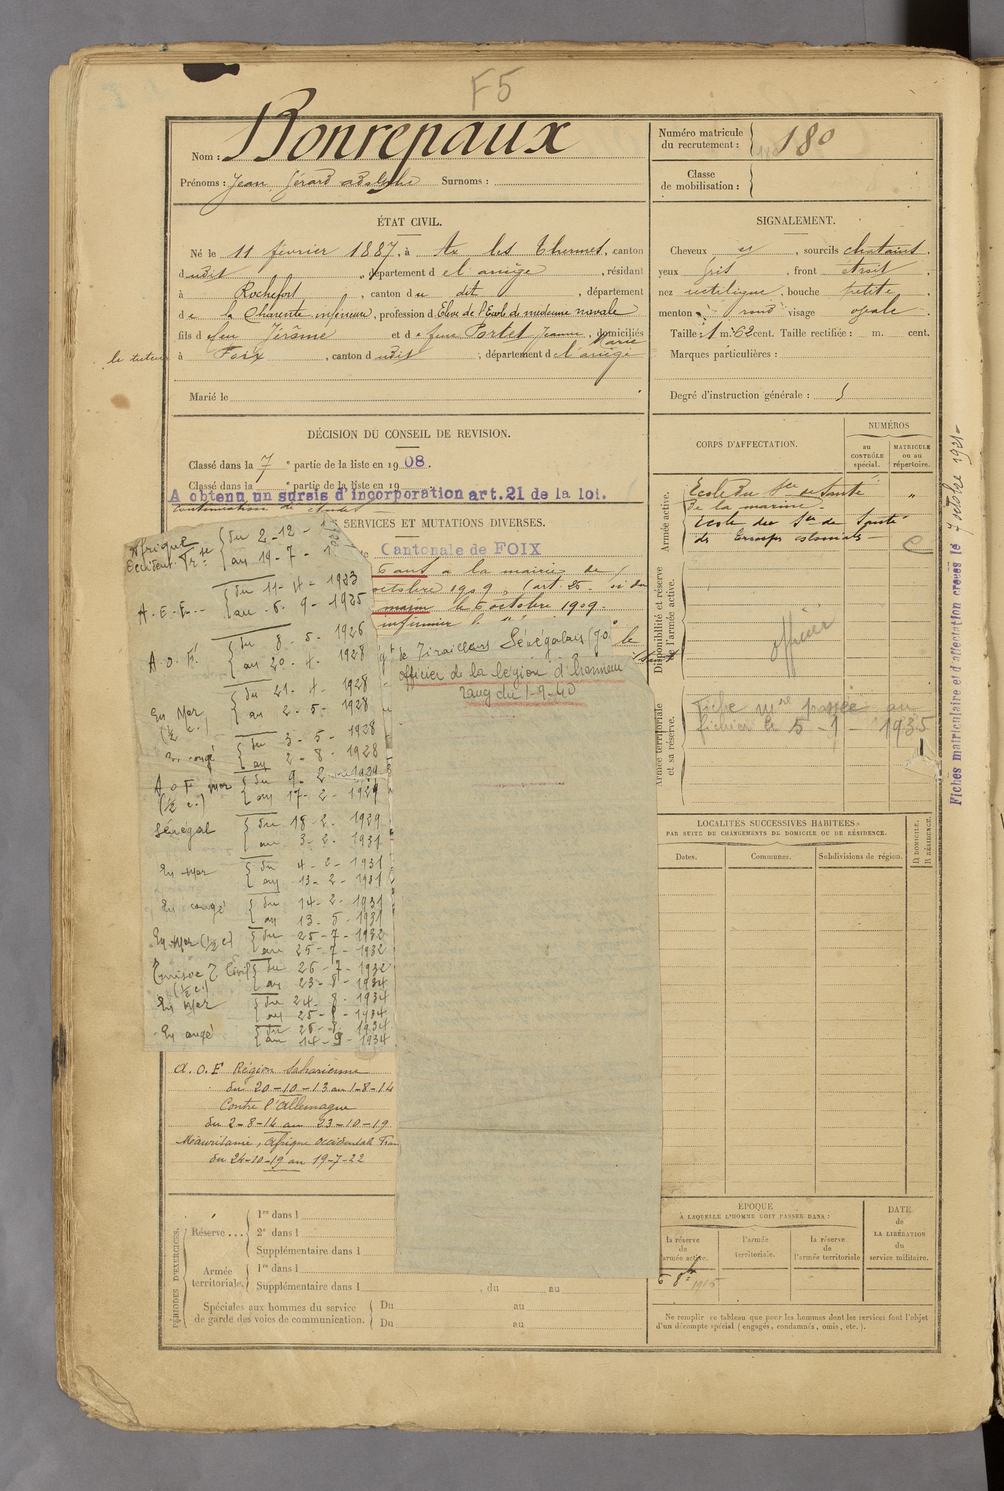 F5
Nom : Bonrepaux
Prénoms : Jean Gérard Adolphe Surnoms :
Numéro matricule du recrutement : 180
Classe de mobilisation :
ÉTAT CIVIL.
Né le 11 février 1887, à Ax les Thermes, canton
dudit, département de l'ariège, résidant
à Rochefort, canton du dit, département
de la Charente inférieure, profession d'Elève de l'Ecole de médecine navale
fils de feu Jérôme et de feue Portet Jeanne Marie, domiciliés
le tuteur à Foix, canton dudit, département de l'ariège
Marié le
SIGNALEMENT.
Cheveux et, sourcils chatains,
yeux gris, front étroit,
nez rectiligne, bouche petite
menton rond visage ovale
Taille : 1 m. 62 cent. Taille rectifiée : m. cent.
Marques particulières :
Degré d'instruction générale : 5
DÉCISION DU CONSEIL DE REVISION.
Classé dans la 7e partie de la liste en 1908.
Classé dans la e partie de la liste en 19
A obtenu un sursis d'incorporation art. 21 de la loi.
continuation de études
SERVICES ET MUTATIONS DIVERSES.
Cantonale de FOIX
6 ans à la mairie de
octobre 1909, (art. 25
marin le 6 octobre 1909.
infirmier
gt de Tirailleurs Sénégalais (J.O. le
officier de la légion d'honneur
rang du 1-9-40
Afrique
Occident. Fr.se
du 2-12-1
au 19-7-1
A.E.F.
du 11-4-1923
au 6-9-1925
A.O.F.
du 8-5-1926
au 20-4-1928
En Mer
(1/2 c.)
du 21-4-1928
au 2-5-1928
En congé
du 3-5-1928
au 2-8-1928
A.O.F. mer
(1/2 c.)
du 9-2-1929
au 17-2-1929
Sénégal
du 18-2-1929
au 3-2-1931
En mer
du 4-2-1931
au 13-2-1931
En congé
du 14-2-1931
au 13-5-1931
En Mer (1/2 c)
du 25-7-1932
au 25-7-1932
(1/2 c.)
du 26-7-1932
au 23-8-1934
En Mer
du 24-8-1934
au 25-8-1934
En congé
du 26-8-1934
au 14-9-1934
A.O.F Région Saharienne
du 20-10-13 au 1-8-14
Contre l'Allemagne
du 2-8-14 au 23-10-19
Mauritanie, Afrique Occidentale Fran
du 24-10-19 au 19-7-22
CORPS D'AFFECTATION.
NUMÉROS
au CONTRÔLE spécial.
MATRICULE ou au répertoire.
Armée active.
Ecole du Sce de Santé
de la marine.
Ecole du Sce de Santé
des troupes coloniales
Disponibilité et réserve de l'armée active.
officier
Armée territoriale et sa réserve.
Fiche mle passée au
fichier le 5-1-1935
Fiches matriculaire et d'affectation créées le 7 octobre 1921-
LOCALITÉS SUCCESSIVES HABITÉES
PAR SUITE DE CHANGEMENTS DE DOMICILE OU DE RÉSIDENCE.
Dates.
Communes.
Subdivisions de région.
D. DOMICILE.
R. RÉSIDENCE.
PÉRIODES D'EXERCICES.
Réserve...
1re dans l
2e dans l
Supplémentaire dans l
Armée territoriale.
1re dans l
Supplémentaire dans l , du au
Spéciales aux hommes du service
de garde des voies de communication.
Du au
Du au
ÉPOQUE
À LAQUELLE L'HOMME DOIT PASSER DANS :
la réserve de l'armée active.
l'armée territoriale.
la réserve de l'armée territoriale
DATE de LA LIBÉRATION du service militaire.
1915
Ne remplir ce tableau que pour les hommes dont les services font l'objet
d'un décompte spécial (engagés, condamnés, omis, etc.).